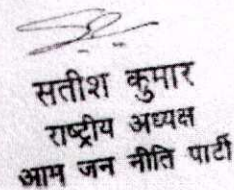 सतीश कुमार
राष्ट्रीय अध्यक्ष
आम जन नीति पार्टी